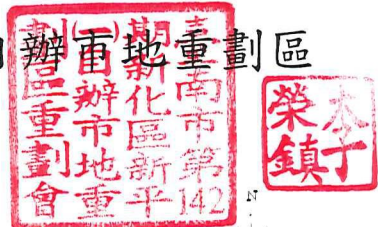 辦市地重劃區
臺南市第142
期新化區新平
(一)自辦市地重
劃區重劃會
李
榮鎮
N